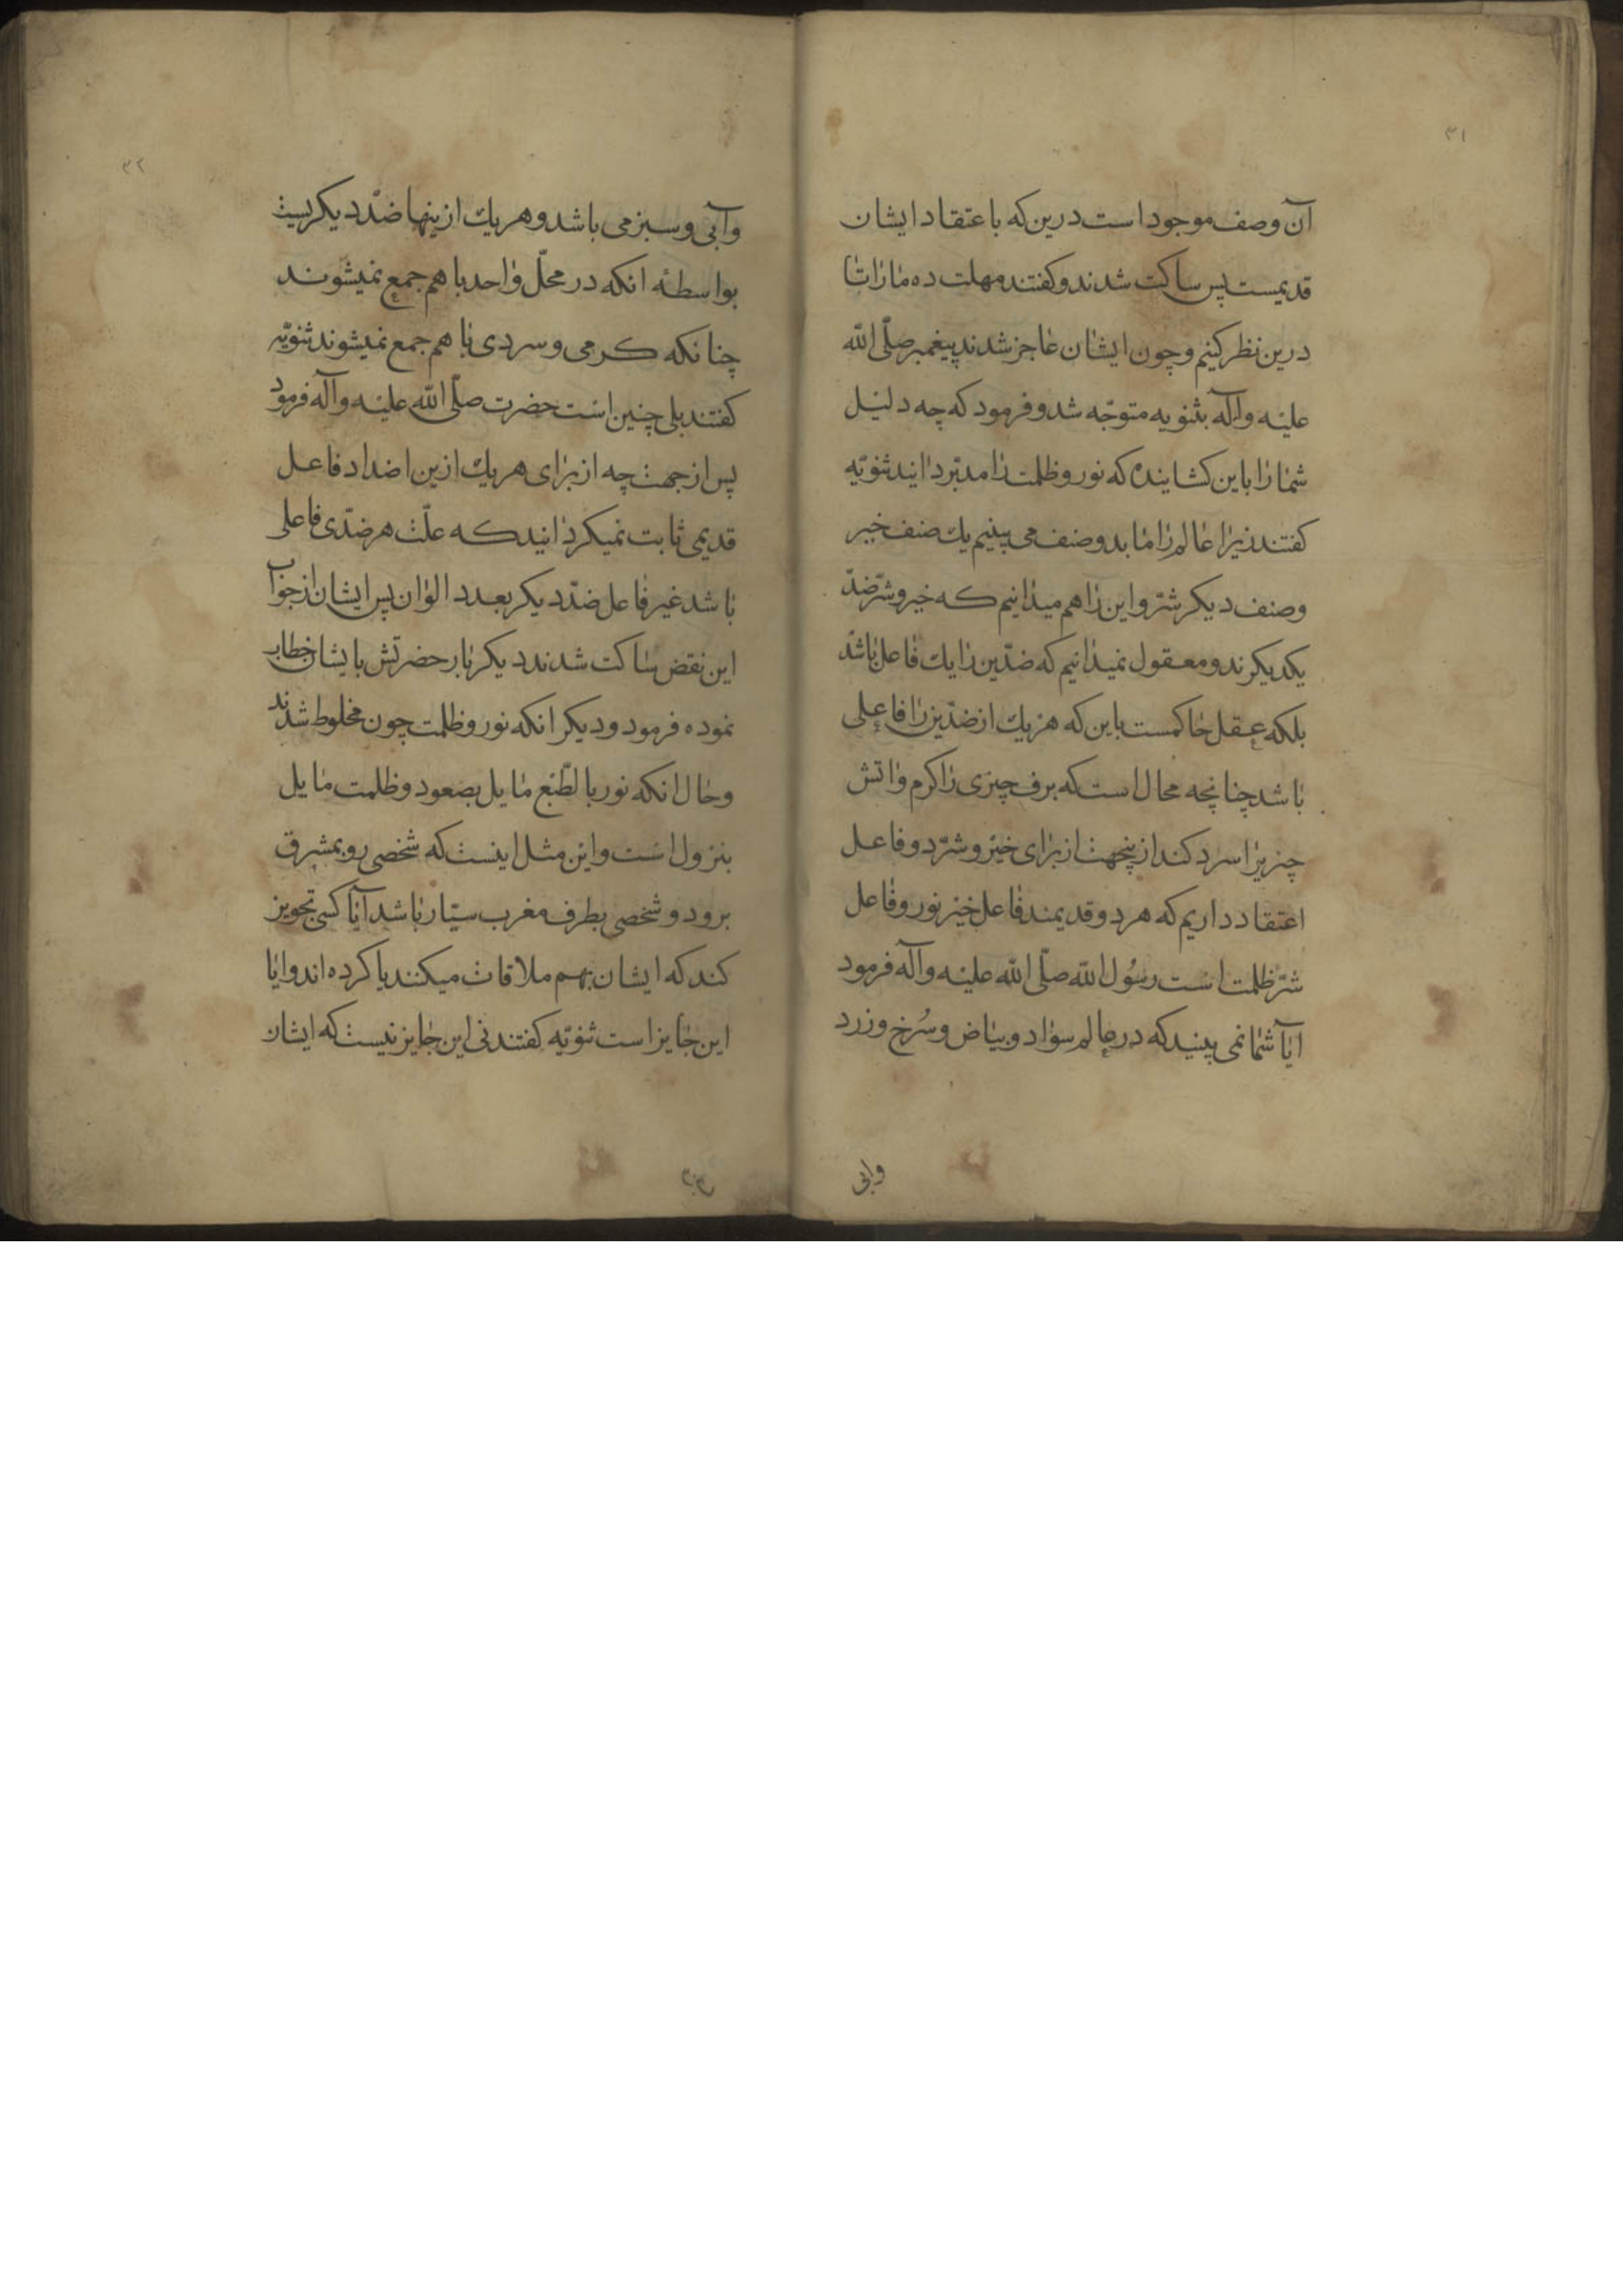 ۳۱
آن وصف موجود است درین که باعتقاد ایشان
قدیمست پس ساکت شدند و کفتند مهلت ده ما را تا
درین نظر کنیم و چون ایشان عاجز شدند پیغمبر صلّی الله
علیه وآله بثنویه متوجّه شد و فرمود که چه دلیل
شما را باین کشانیده که نور و ظلمت را مدبّر دانید ثنویّه
کفتند زیرا عالم را ما بدو صنف می بینیم یك صنف خیر
وصنف دیکر شرّ و این را هم میدانیم که خیر و شرّ ضدّ
یکدیکرند و معقول نمیدانیم که ضدّین را یك فاعل باشد
بلکه عقل حاکمست باین که هر یك از ضدّین را فاعلی
باشد چنانچه محال است که برف چیزی را کرم و اتش
چیزیرا سرد کند ازینجهت از برای خیر و شرّ دو فاعل
اعتقاد داریم که هر دو قدیمند فاعل خیر نور و فاعل
شرّ ظلمت است رسُول الله صلّی الله علیه وآله فرمود
ایآ شما نمی بینید که در عالم سواد و بیاض و سُرخ و زرد
وابی
۳۲
وآبی و سبز می باشد و هر یك ازینها ضدّ دیکریست
بواسطهٔ انکه در محلّ واحد با هم جمع نمیشوند
چنانکه کرمی و سردی با هم جمع نمیشوند ثنویّه
کفتند بلی چنین است حضرت صلّی الله علیه وآله فرمود
پس از جهت چه از برای هر یك ازین اضداد فاعل
قدیمی ثابت نمیکردانید که علّت هر ضدّی فاعلی
باشد غیر فاعل ضدّ دیکر بعدد الوان پس ایشان از جواب
این نقض ساکت شدند دیکر بار حضرتش بایشان خطاب
نموده فرمود و دیکر انکه نور و ظلمت چون مخلوط شدند
وحال انکه نور بالطّبع مایل بصعود و ظلمت مایل
بنزول است و این مثل اینست که شخصی رو بمشرق
برود و شخصی بطرف مغرب سیّار باشد آیا کسی تجویز
کند که ایشان بهم ملاقات میکنند یا کرده اند و ایا
این جایز است ثنویّه کفتند نی این جایز نیست که ایشان